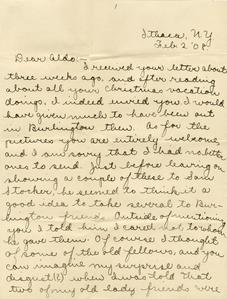 1
Ithaca, N.Y.
Feb 2 '08
Dear Aldo:-
I received your letter about
three weeks ago, and after reading
about all your Christmas vacation
doings, I indeed envied you. I would
have given much to have been out
in Burlington then. As for the
pictures you are entirely welcome,
and I am sorry that I had no better
ones to send. Just before leaving on
showing a couple of these to Sam
he seemed to think it a
good idea to take several to Bur-
lington friends. Outside of mentioning
you I told him I cared not to whom
he gave them. Of course I thought
of some of the old fellows, and you
can imagine my surprise and
disgust(?) when I was told that
two of my old lady friends were